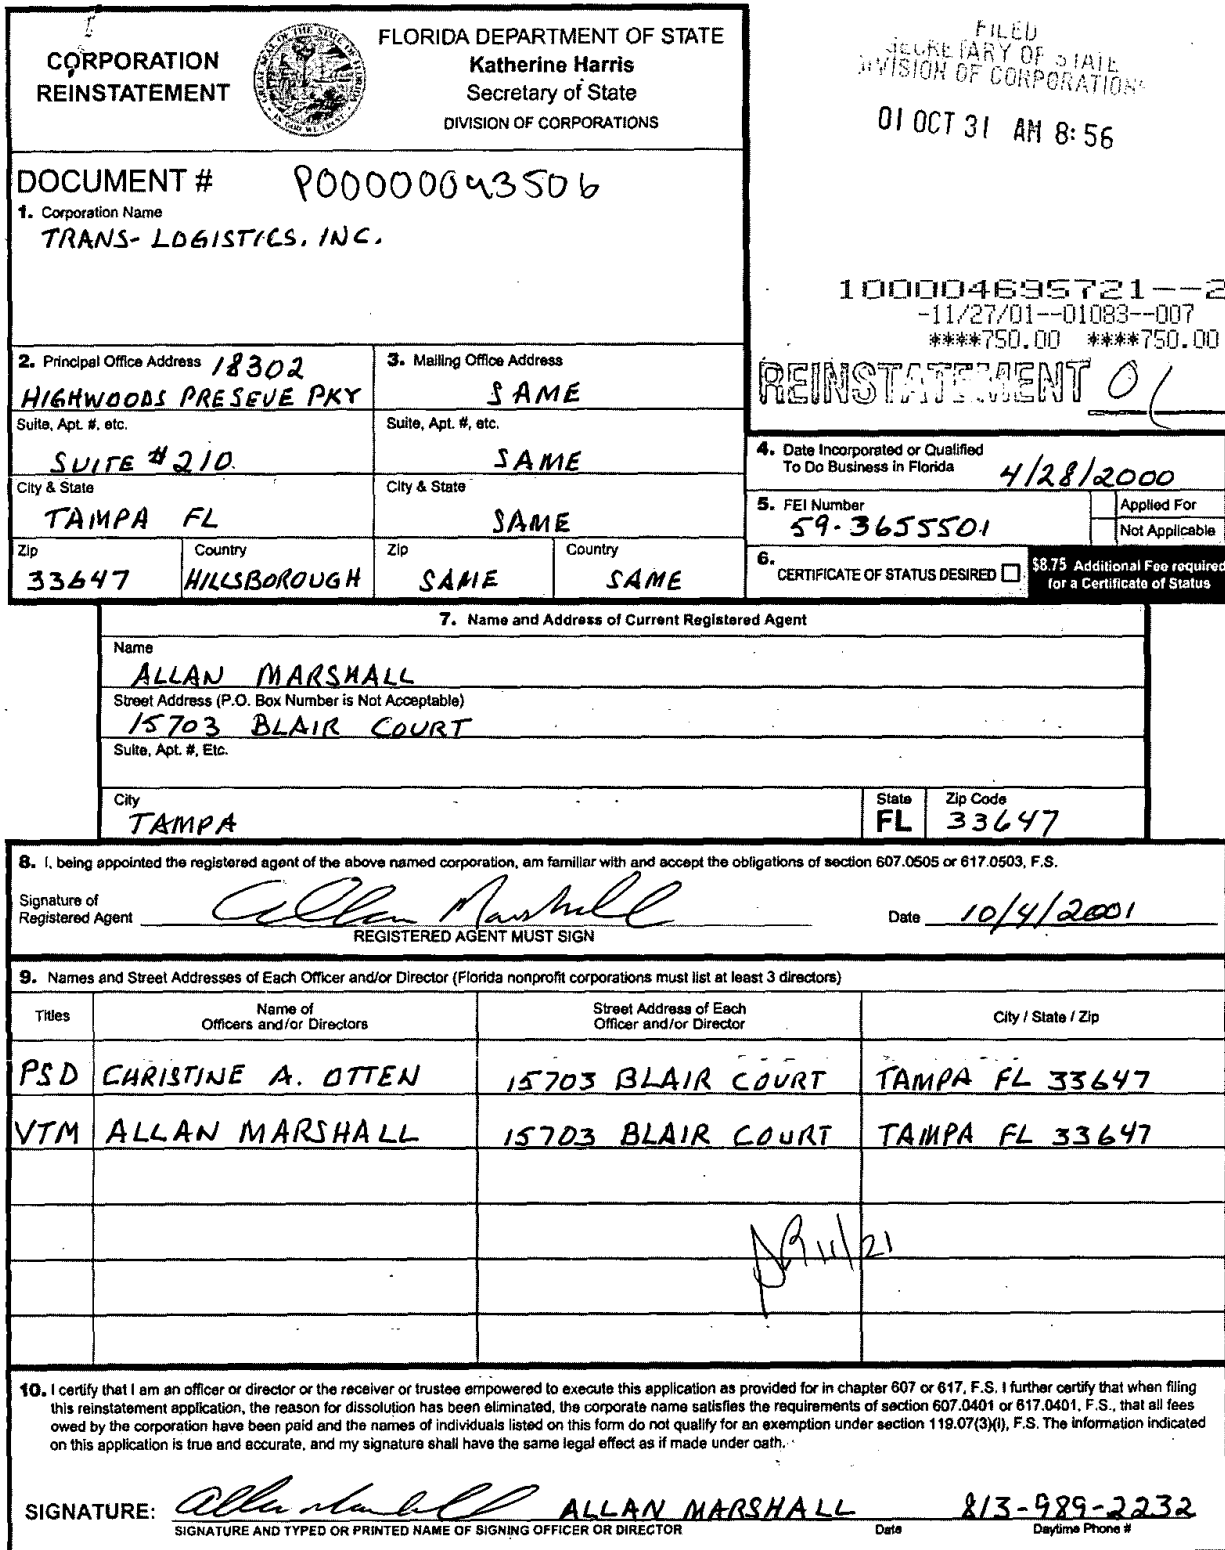 CORPORATION
REINSTATEMENT
FLORIDA DEPARTMENT OF STATE
Katherine Harris
Secretary of State
DIVISION OF CORPORATIONS
FILED
SECRETARY OF STATE
DIVISION OF CORPORATIONS
01 OCT 31 AM 8:56
DOCUMENT # P00000043506
1. Corporation Name
TRANS-LOGISTICS, INC.
100004695721--2
-11/27/01--01083--007
****750.00 ****750.00
REINSTATEMENT 01
2. Principal Office Address 18302
HIGHWOODS PRESEVE PKY
3. Mailing Office Address
SAME
Suite, Apt. #, etc.
SUITE #210
Suite, Apt. #, etc.
SAME
City & State
TAMPA FL
City & State
SAME
Zip
33647
Country
HILLSBOROUGH
Zip
SAME
Country
SAME
4. Date Incorporated or Qualified
To Do Business in Florida 4/28/2000
5. FEI Number
59-3655501
Applied For
Not Applicable
6.
CERTIFICATE OF STATUS DESIRED
$8.75 Additional Fee required
for a Certificate of Status
7. Name and Address of Current Registered Agent
Name
ALLAN MARSHALL
Street Address (P.O. Box Number is Not Acceptable)
15703 BLAIR COURT
Suite, Apt. #, Etc.
City
TAMPA
State
FL
Zip Code
33647
8. I, being appointed the registered agent of the above named corporation, am familiar with and accept the obligations of section 607.0505 or 617.0503, F.S.
Signature of
Registered Agent Allan Marshall
Date 10/4/2001
REGISTERED AGENT MUST SIGN
9. Names and Street Addresses of Each Officer and/or Director (Florida nonprofit corporations must list at least 3 directors)
Titles
Name of
Officers and/or Directors
Street Address of Each
Officer and/or Director
City / State / Zip
PSD CHRISTINE A. OTTEN 15703 BLAIR COURT TAMPA FL 33647
VTM ALLAN MARSHALL 15703 BLAIR COURT TAMPA FL 33647
11/21
10. I certify that I am an officer or director or the receiver or trustee empowered to execute this application as provided for in chapter 607 or 617, F.S. I further certify that when filing
this reinstatement application, the reason for dissolution has been eliminated, the corporate name satisfies the requirements of section 607.0401 or 617.0401, F.S., that all fees
owed by the corporation have been paid and the names of individuals listed on this form do not qualify for an exemption under section 119.07(3)(i), F.S. The information indicated
on this application is true and accurate, and my signature shall have the same legal effect as if made under oath.
SIGNATURE: Allan Marshall ALLAN MARSHALL 813-989-2232
SIGNATURE AND TYPED OR PRINTED NAME OF SIGNING OFFICER OR DIRECTOR
Date
Daytime Phone #